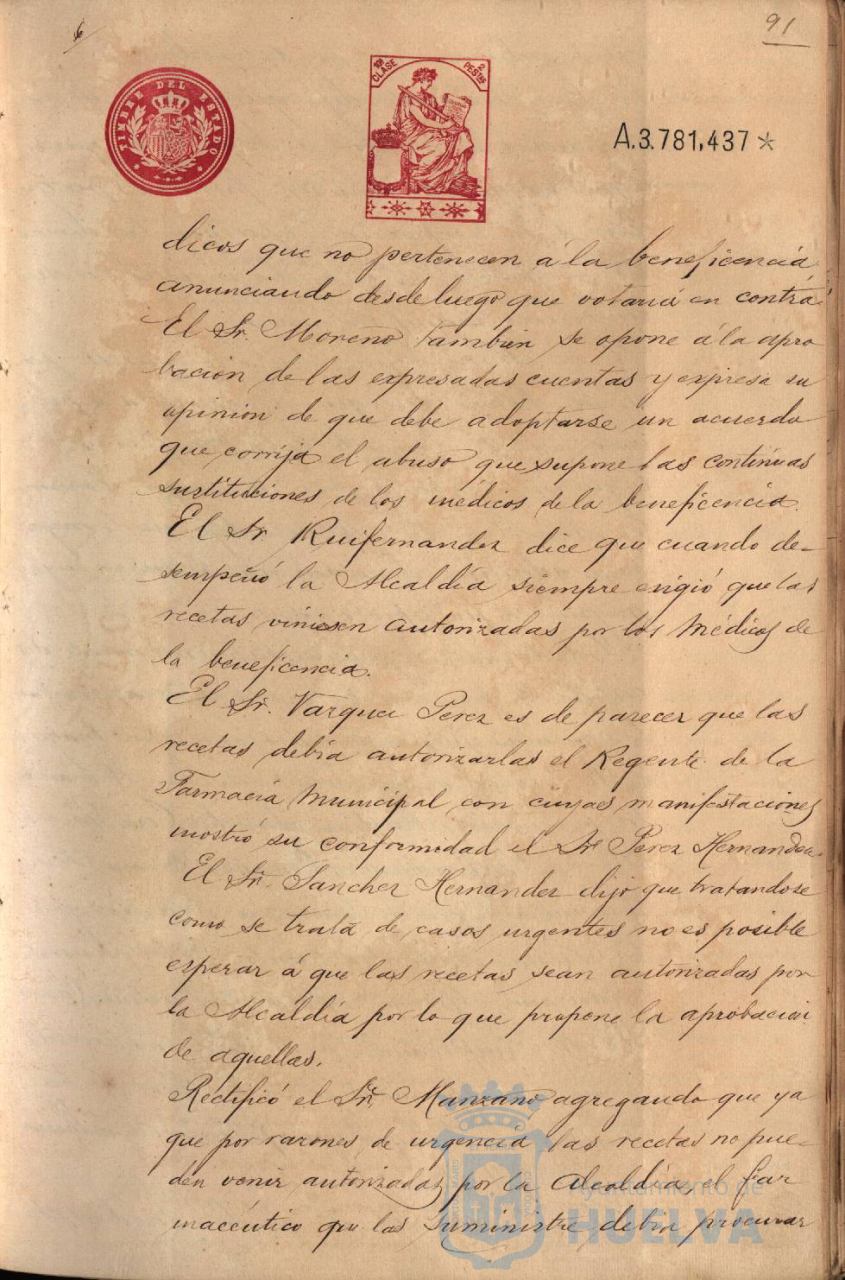 91
TIMBRE DEL ESTADO
10ª CLASE
2 PESTAS
A.3.781,437*
dicos que no pertenecen á la beneficencia
anunciando desde luego que votaria en contra.
El Sr. Moreno tambien se opone á la apro
bacion de las expresadas cuentas y expresa su
opinion de que debe adoptarse un acuerdo
que corrija el abuso que supone las continuas
sustituciones de los médicos de la beneficencia.
El Sr Ruifernandez dice que cuando de-
sempeñó la Alcaldía siempre exigió que las
recetas viniesen autorizadas por los Médicos de
la beneficencia.
El Sr. Vazquez Perez es de parecer que las
recetas debia autorizarlas el Regente de la
Farmacia Municipal con cuyas manifestaciones
mostró su conformidad el Sr Perez Hernandez.
El Sr. Sanchez Hernandez dijo que tratandose
como se trata de casos urgentes no es posible
esperar á que las recetas sean autorizadas por
la Alcaldía por lo que propone la aprobacion
de aquellas.
Rectificó el Sr. Manzano agregando que ya
que por razones de urgencia las recetas no pue-
den venir autorizadas por la Alcaldía, el far
maceutico que las suministre debia procurar
Ayuntamiento de
HUELVA